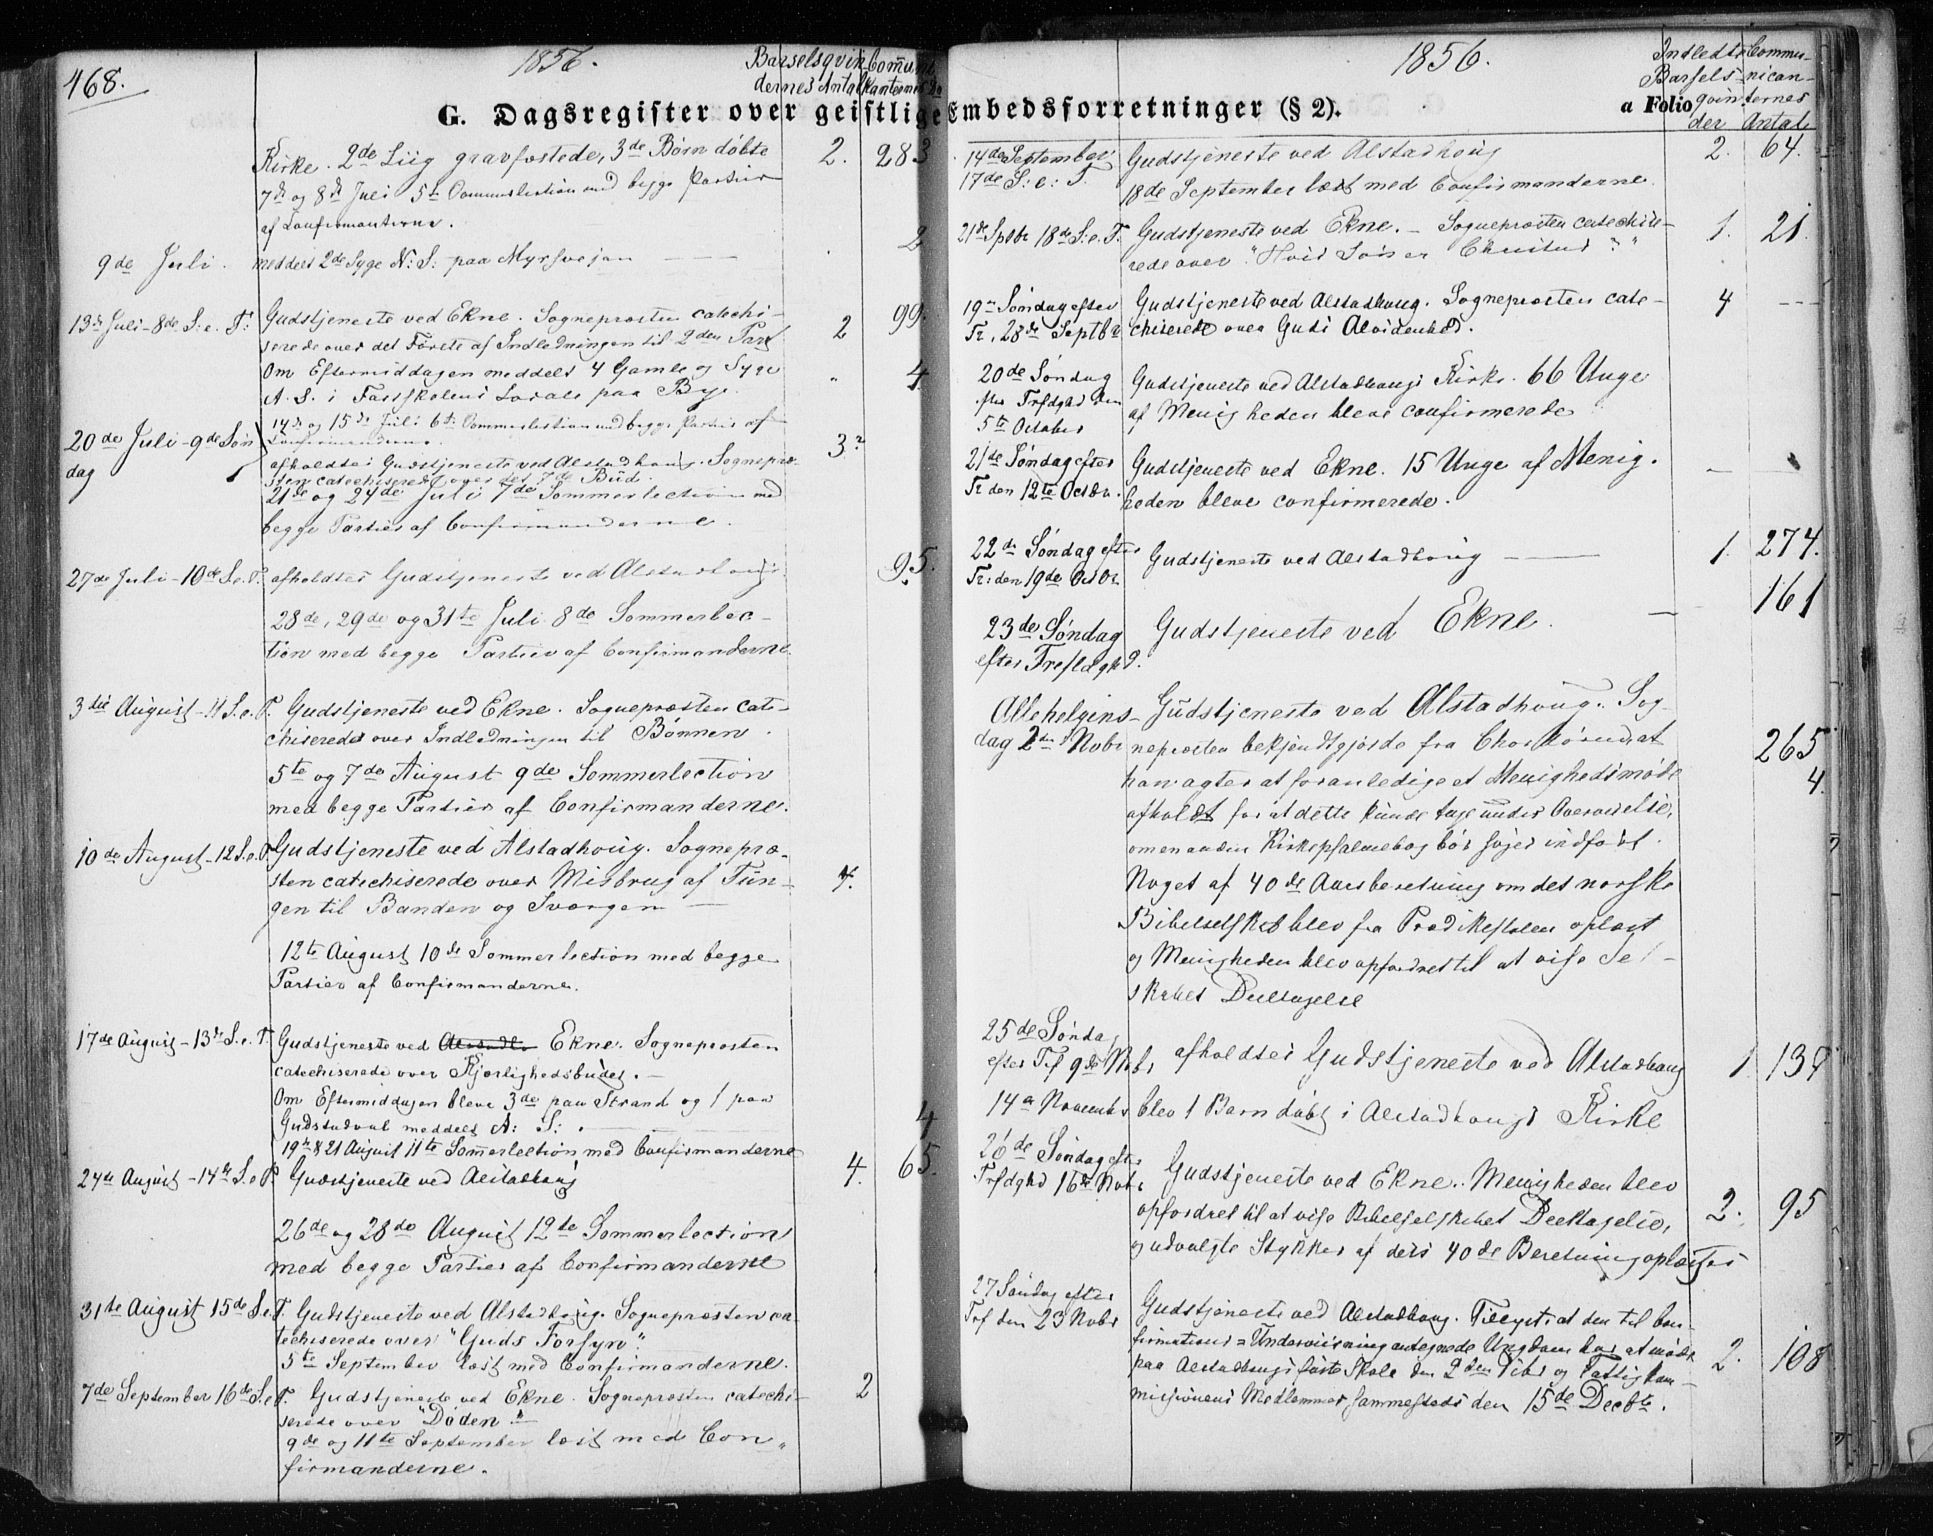 468.
1856.
Barselsqvin- Commu-
dernes Antal
G. Dagsregister over geistlige
Kirke. 2de Liig gravfæstede, 3de Børn døbte 2. 283
7de og 8de Juli 5te Sommerlection med begge Partier
af Confirmanterne. 2
9de Juli. meddelt 2de Syge N: S: paa Myrsvejan
13de Juli - 8de S. e. T: Gudstjeneste ved Ekne. Sognepræsten catechi- 99.
serede over det Første af Indledningen til 2den Part 2
Om Eftermiddagen meddelt 4 Gamle og Syge " 4
A. S. i Fastskolens Locale paa Bye.
14de og 15de Juli 6te Sommerlection med begge Partier af
20de Juli - 9de Søn Confirmanderne. 3
dag afholdtes Gudstjeneste ved Alstadhoug. Sognepræ-
sten catechiserede over det 7de Bud.
21de og 24de Juli 7de Sommerlection med
begge Partier af Confirmanderne.
27de Juli - 10de S. e. T. afholdtes Gudstjeneste ved Alstadhoug. 95.
28de, 29de og 31te Juli 8de Sommerlec-
tion med begge Partier af Confirmanderne.
3die August - 11 S. e. T. Gudstjeneste ved Ekne. Sognepræsten cate-
chiserede over Indledningen til Bønnen.
5te og 7de August 9de Sommerlection
med begge Partier af Confirmanderne.
10de August - 12 S. e. T. Gudstjeneste ved Alstadhoug. Sognepræ-
sten catechiserede over Misbrug af Tun- 4.
gen til Banden og Sværgen
12te August 10de Sommerlection med begge
Partier af Confirmanderne.
17de August - 13de S. e. T. Gudstjeneste ved Alstadh Ekne. Sognepræsten
catechiserede over Kjærlighedsbudet. -
Om Eftermiddagen bleve 3de paa Strand og 1 paa
meddelt A: S: 4
19de & 21 August 11te Sommerlection med Confirmanderne
24de August - 14de S. e. T. Gudstjeneste ved Alstadhoug 4. 65.
26de og 28de August 12te Sommerlection
med begge Partier af Confirmanderne
31te August 15de S. e. T. Gudstjeneste ved Alstadhoug. Sognepræsten ca-
techiserede over "Guds Forsyn".
5te September læst med Confirmanderne.
7de September 16de S. e. T. Gudstjeneste ved Ekne. Sognepræsten catechi- 2
serede over "Døden."
9de og 11te September læst med Con-
firmanderne.
1856.
Indledte Commu-
Barsels- nican-
qvin- ternes
der Antal
Embedsforretninger (§ 2). a Folio
14de September Gudstjeneste ved Alstadhoug 2. 64.
17de S: e: T. 18de September læst med Confirmanderne.
21de Sptbr 18de S: e. T. Gudstjeneste ved Ekne. - Sognepræsten catechise- 1. 21.
rede over "Hvis Søn er Christus?"
19de Søndag efter Gudstjeneste ved Alstadhoug. Sognepræsten cate- 4 ---
Tr. 28de Septbr chiserede over Guds Alvidenhed.
20de Søndag Gudstjeneste ved Alstadhougs Kirke. 66 Unge
efter Trfdghd den af Menigheden bleve confirmerede
5te October
21de Søndag efter Gudstjeneste ved Ekne. 15 Unge af Menig-
Tr den 12te Octbr. heden bleve confirmerede.
22de Søndag efter Gudstjeneste ved Alstadhoug 1. 274.
Tr: den 19de Octbr
23de Søndag Gudstjeneste ved Ekne. 161
efter Trefldghd.
Allehelgens- Gudstjeneste ved Alstadhoug. Sog-
dag 2den Novbr nepræsten bekjendtgjorde fra Chordøren, at 265
han agter at foranledige et Menighedsmøde 4.
afholdt for at dette kunde tage under Overveielse,
om en anden Kirkepsalmebog bør søges indført.
Noget af 40de Aarsberetning om det norske
Bibelselskab blev fra Prædikestolen oplæst
og Menigheden blev opfordret til at vise Sel-
skabet Deeltagelse
25de Søndag
efter Trf 9de Novbr afholdtes Gudstjeneste ved Alstadhoug 1 134
14de November blev 1 Barn døbt i Alstadhougs Kirke
26de Søndag efter Gudstjeneste ved Ekne. Menigheden blev
Trfdghd 16de Novbr opfordret til at vise Bibelselskabet Deeltagelse, 2. 95
og udvalgte Stykker af dets 40de Beretning oplæstes
27 Søndag efter Gudstjeneste ved Alstadhoug. Tillyst at den til Con-
Trf den 23 Novbr firmations-Underviisning antegnede Ungdom har at møde 2. 108
paa Alstadhougs faste Skole den 2den Dcbr og Fattigkom-
missionens Medlemmer sammesteds den 15de Decbr.